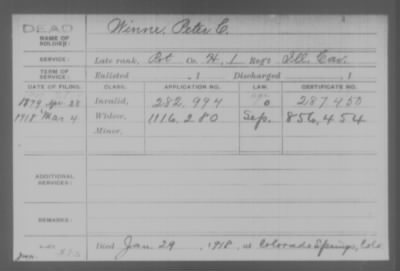 DEAD
NAME OF SOLDIER: Winne, Peter C.
SERVICE: Late rank, Pvt Co. H, 1 Reg't Ill. Cav.
TERM OF SERVICE: Enlisted , 1 Discharged , 1
DATE OF FILING. CLASS. APPLICATION NO. LAW. CERTIFICATE NO.
1879, Apr 28 Invalid, 282,994 287450
1918 Mar 4 Widow, 1116,280 Sep. 856,454
Minor,
ADDITIONAL SERVICES:
REMARKS:
Died Jan. 29, 1918, at Colorado Springs, Colo